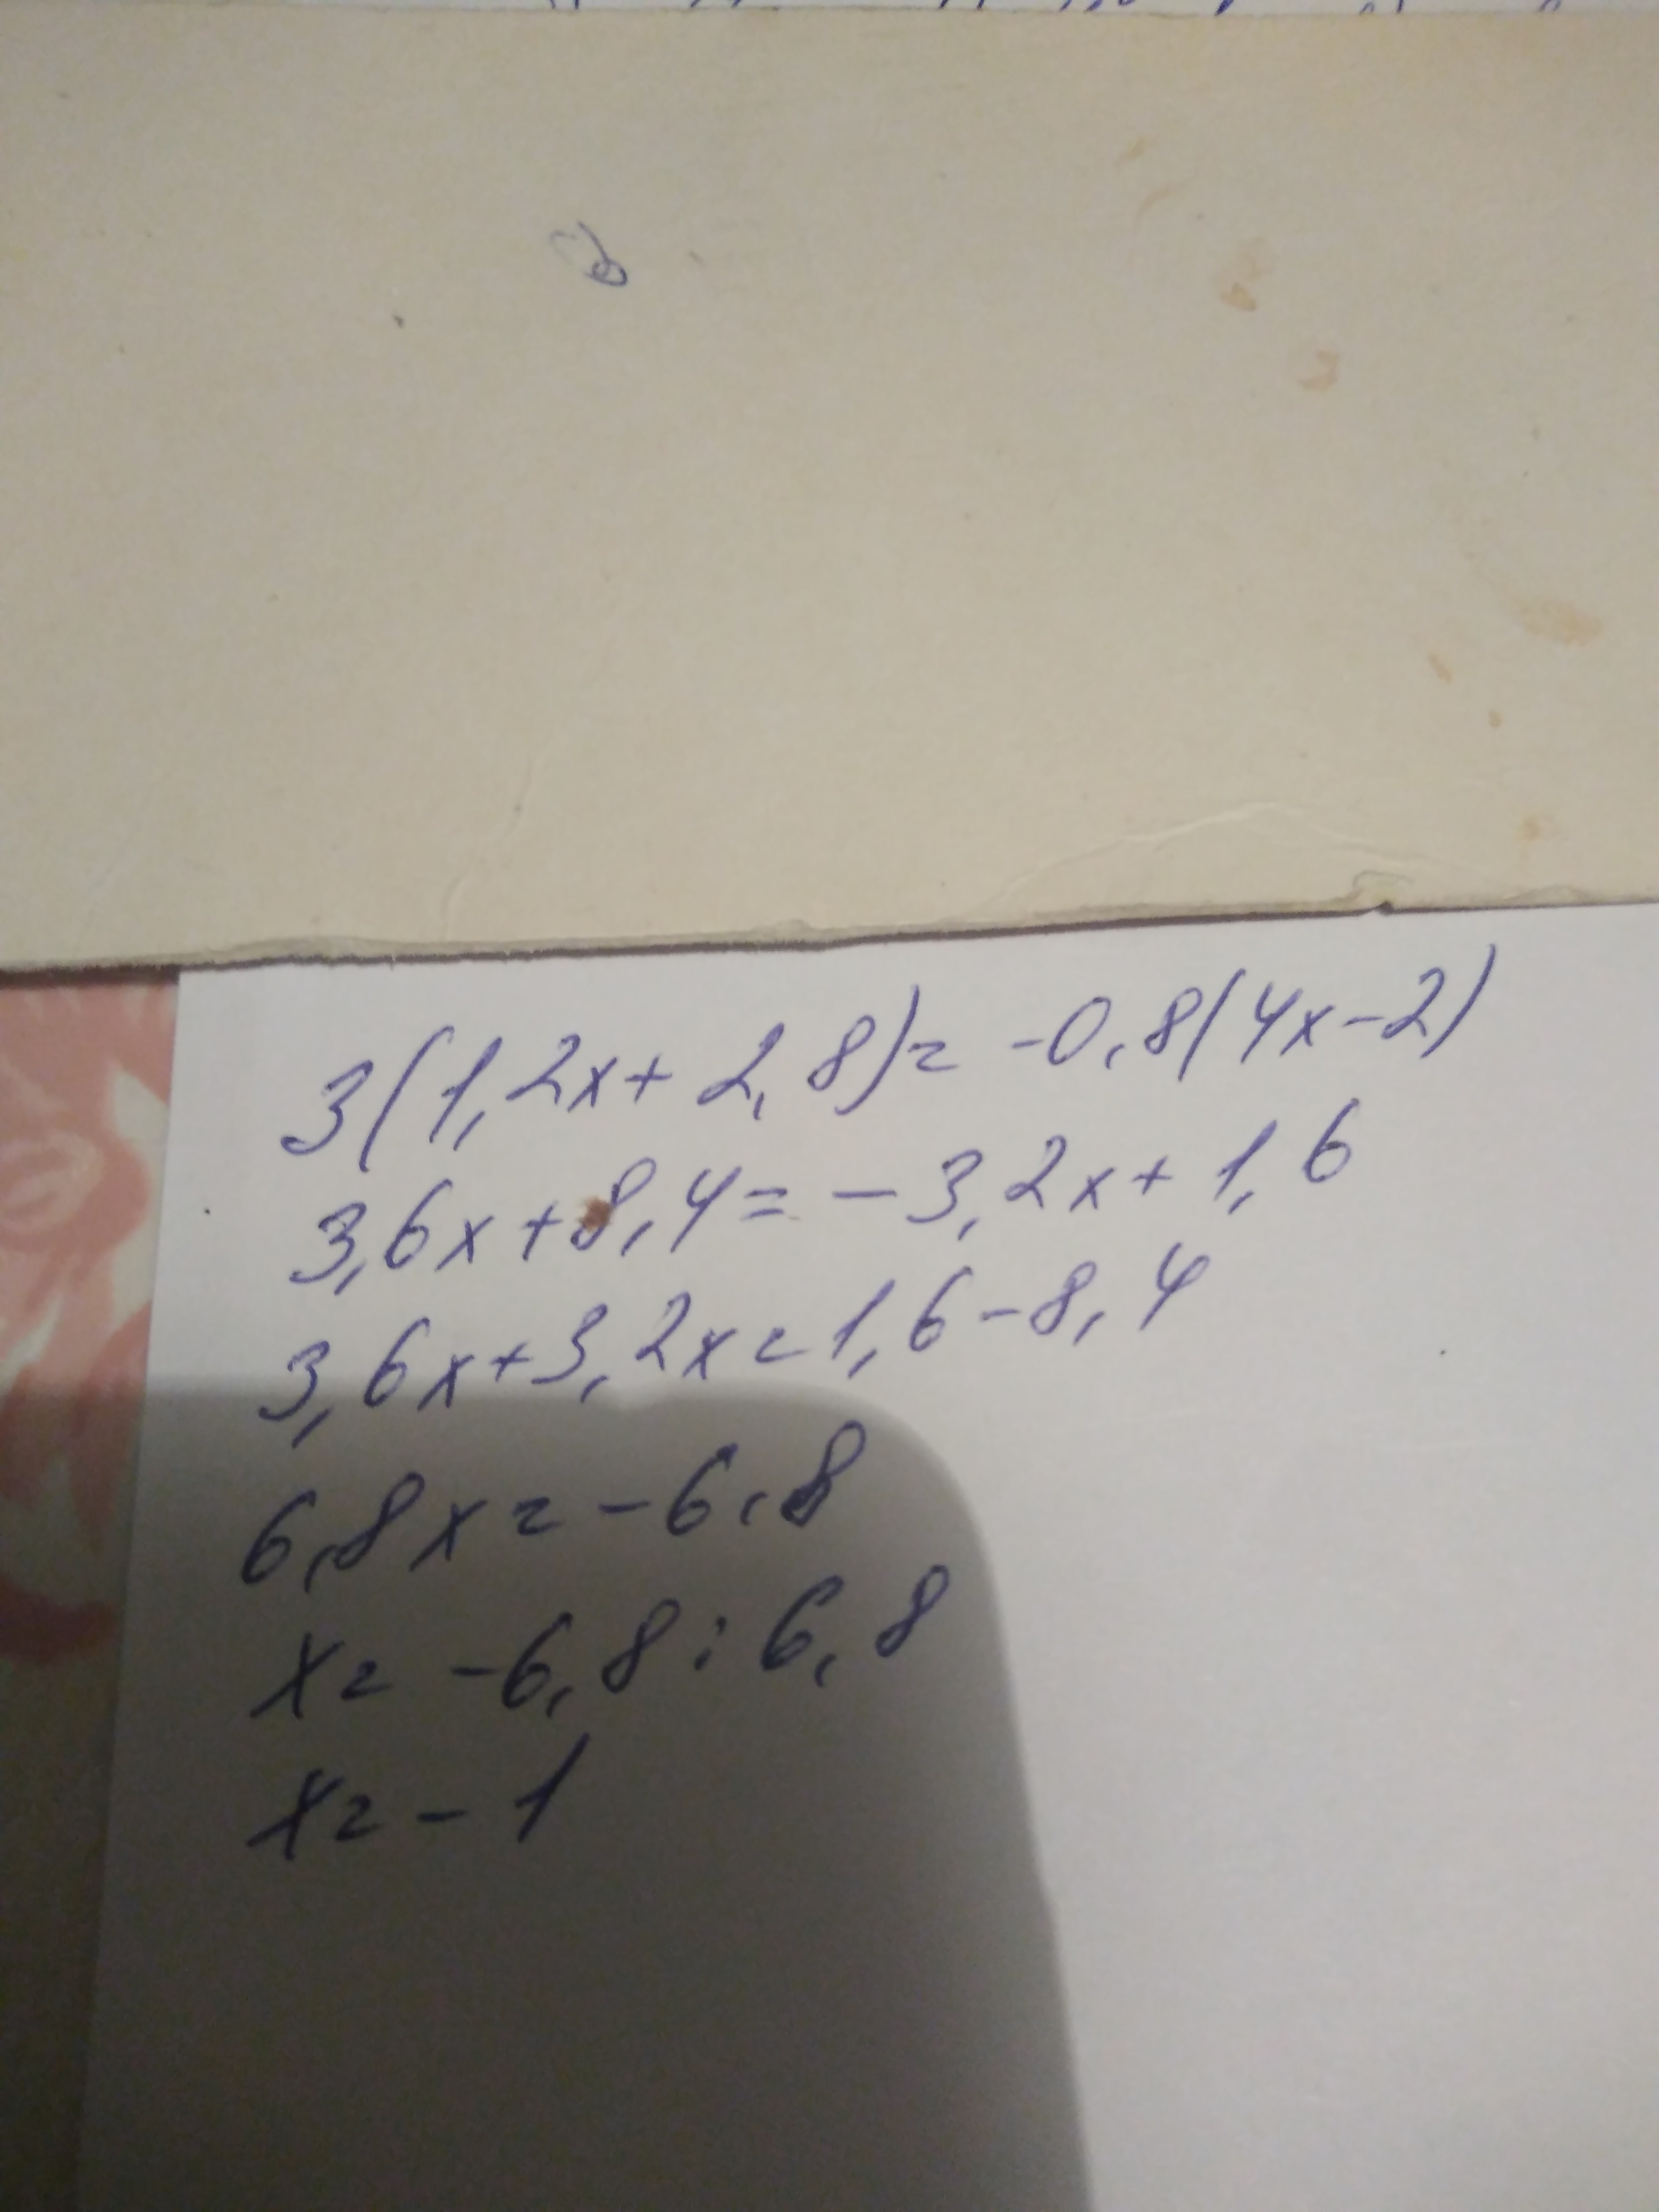 3(1,2x+2,8)=-0,8(4x-2)
3,6x+8,4=-3,2x+1,6
3,6x+3,2x=1,6-8,4
6,8x=-6,8
x=-6,8:6,8
x=-1